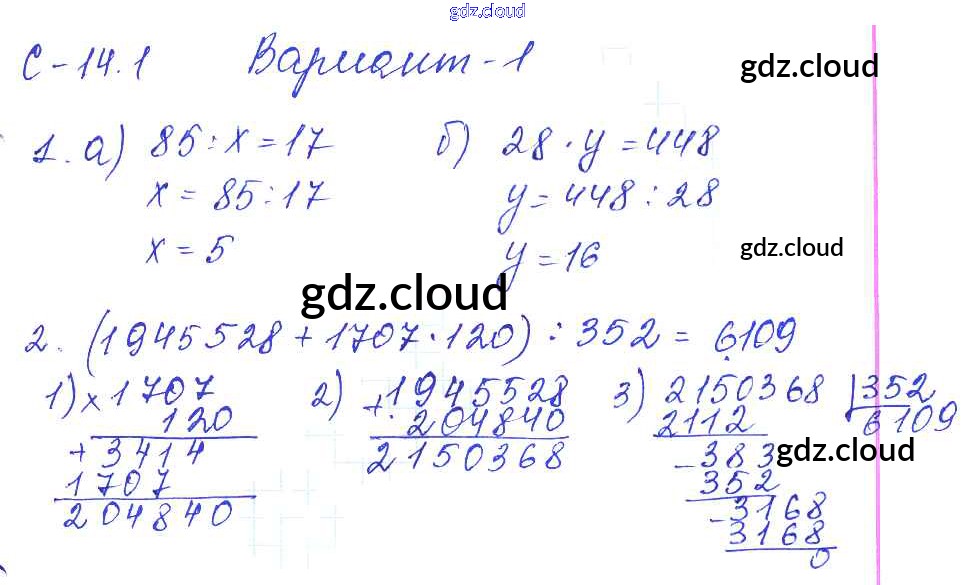 gdz.cloud
С-14.1 Вариант-1
gdz.cloud
1. а) 85 : x = 17 б) 28 · y = 448
x = 85 : 17 y = 448 : 28
x = 5 y = 16
gdz.cloud
gdz.cloud
2. (1945528 + 1707 · 120) : 352 = 6109
1) × 1707 2) + 1945528 3) 2150368 | 352
120 204840 2112 6109
+ 3414 2150368 - 383
gdz.cloud
1707 352
204840 - 3168
3168
0